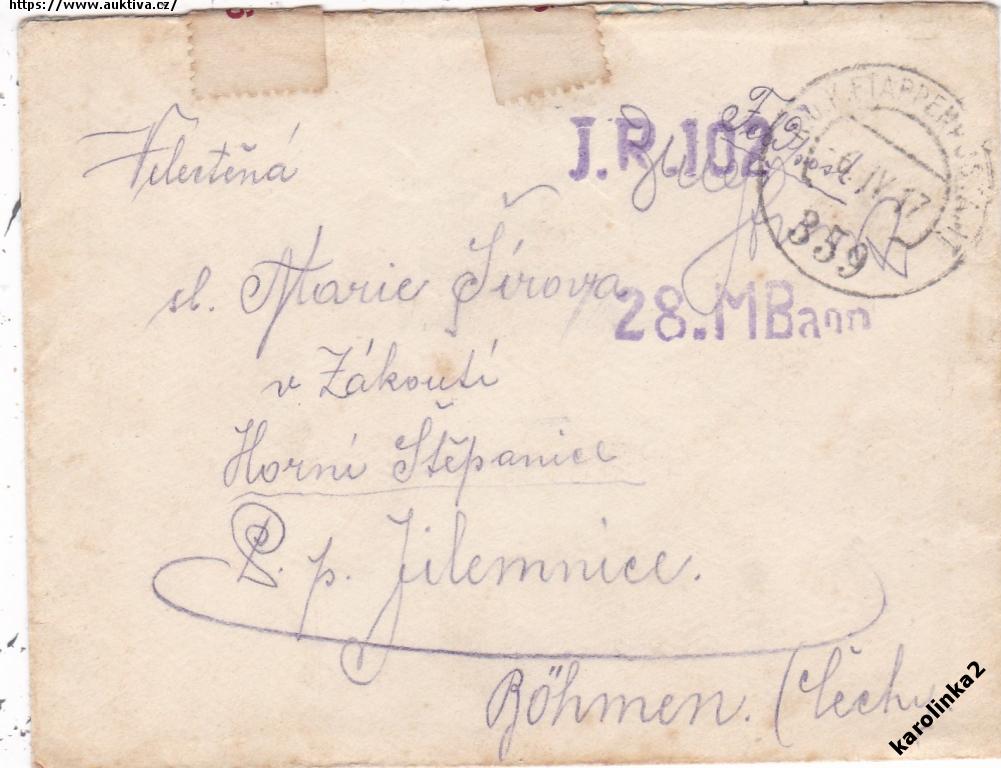 https://www.auktiva.cz/
J.R.102
Fel Post
K.U.K. ETAPPENPOSTAMT
IV 17
359
Velectěná
sl. Marie Šírova
28.MBaon
v Zákoutí
Horní Štěpanice
P. p. Jilemnice.
Böhmen. (Čechy
karolinka2